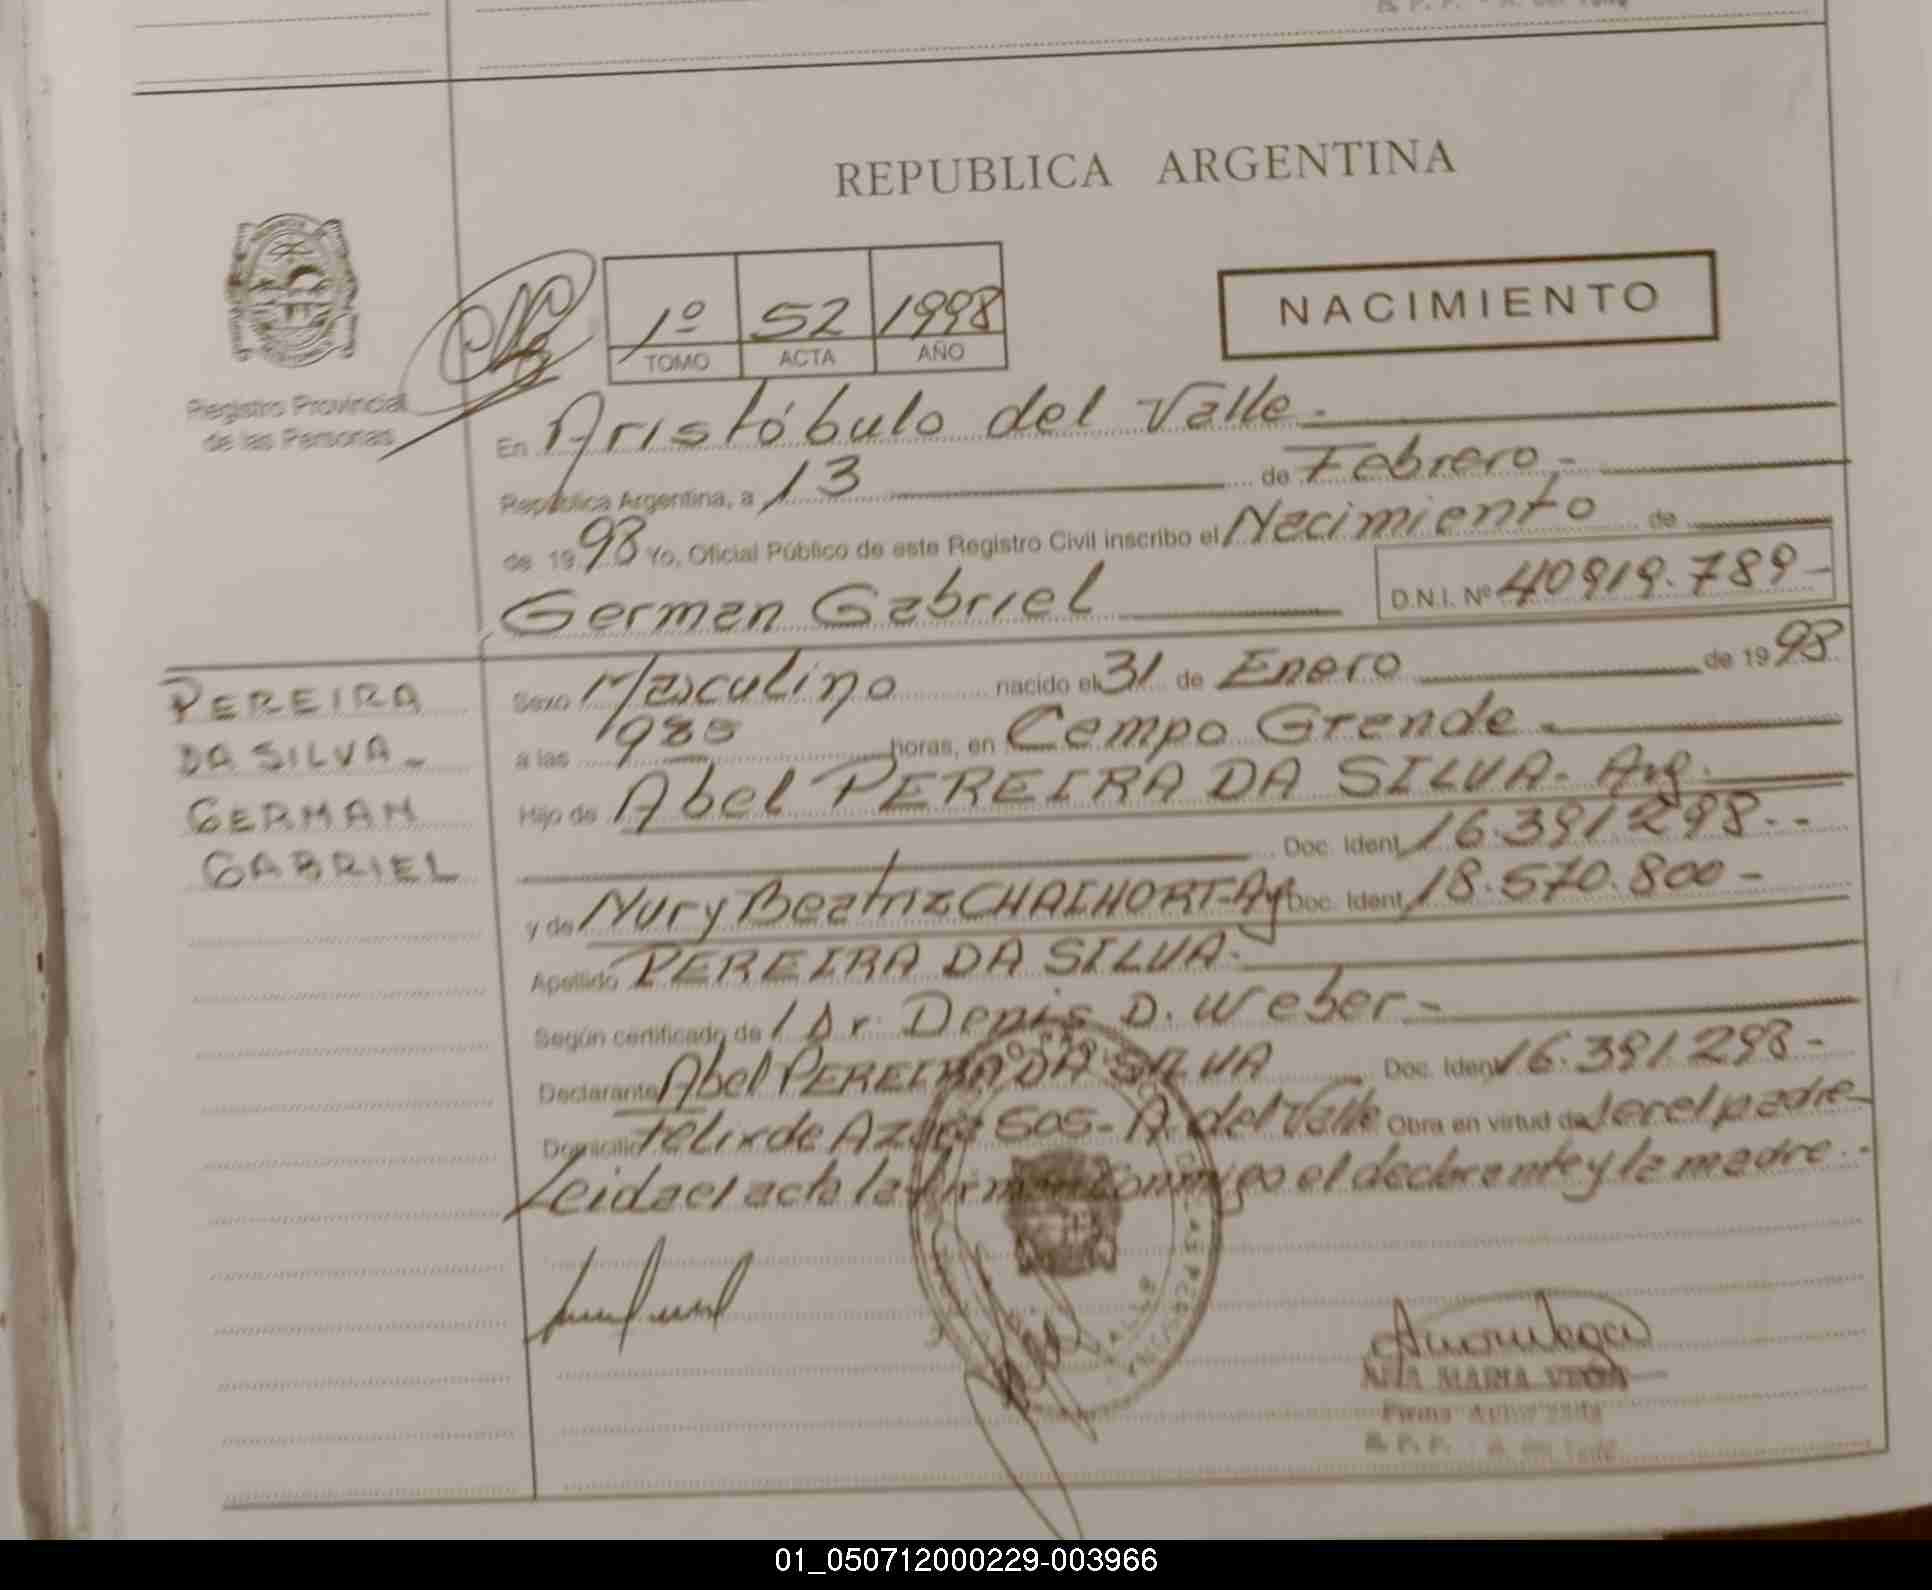 REPUBLICA ARGENTINA
Registro Provincial
de las Personas
1º 52 1998
TOMO ACTA AÑO
NACIMIENTO
En Aristóbulo del Valle.
República Argentina, a 13 de Febrero.-
de 1998 Yo, Oficial Público de este Registro Civil inscribo el Nacimiento de
German Gabriel D.N.I. Nº 40919.789-
PEREIRA
DA SILVA-
GERMAN
GABRIEL
Sexo Masculino nacido el 31 de Enero de 1998
a las horas, en Campo Grande.
Hijo de Abel PEREIRA DA SILVA- Arg.
Doc. Ident. 16.391298--
y de Nury Beatriz Doc. Ident. 18.570.800-
Apellido PEREIRA DA SILVA.
Según certificado de / Dr. Denis D. Weber-
Declarante Abel PEREIRA DA SILVA Doc. Ident. 16.391298-
Domicilio Félix de Azara 505- A. del Valle Obra en virtud de ser el padre-
Leida el acta la firman conmigo el declarante y la madre.-
ANA MARIA VEGA
Firma Autorizada
R. P. P. - A. del Valle
01_050712000229-003966